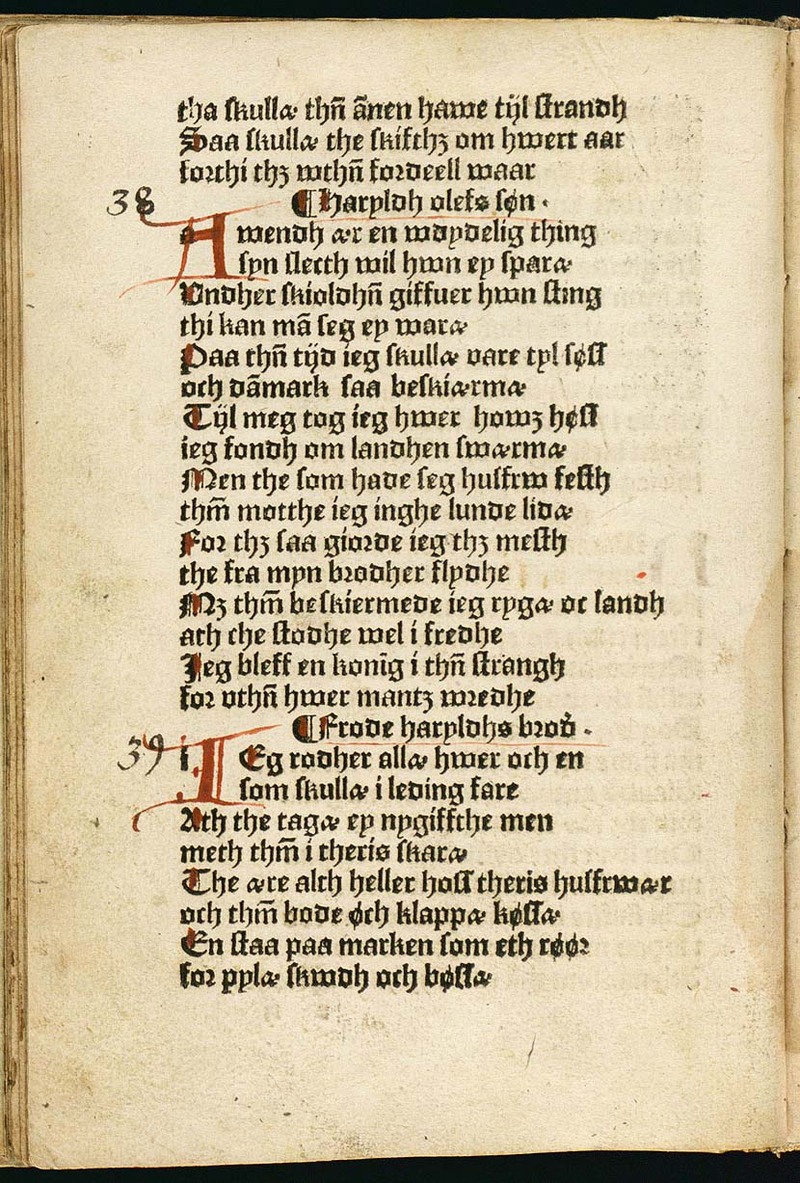 tha skullæ thn̄ ānen hawe tijl strandh
Saa skullæ the skifthꝫ om hwert aar
forthi thꝫ wthn̄ fordeell waar
38 ¶Haryldh olefs søn.
AWendh ær en wdydelig thing
syn slecth wil hwn ey sparæ
Undher skioldhn̄ giffuer hwn sting
thi kan mā seg ey waræ
Paa thn̄ tijd ieg skullæ vare tyl søss
och dāmark saa beskiærmæ
Tijl meg tog ieg hwer howꝫ høss
ieg fondh om landhen swærmæ
Men the som hade seg husfrw festh
thm̄ motthe ieg inghe lunde lidæ
For thꝫ saa giorde ieg thꝫ mesth
the fra myn brodher flydhe
Mꝫ thm̄ beskiermede ieg rygæ oc landh
ath the stodhe wel i fredhe
Jeg bleff en konīg i thn̄ strangh
for vthn̄ hwer mantꝫ wredhe
39 ¶Frode haryldhs brod̄.
IEg rodher allæ hwer och en
som skullæ i leding fare
Ath the tagæ ey nygiffthe men
meth thm̄ i theris skaræ
The ære alth heller hoss theris husfrwær
och thm̄ bode och klappæ køssæ
En staa paa marken som eth røør
for pylæ skwdh och bøssæ